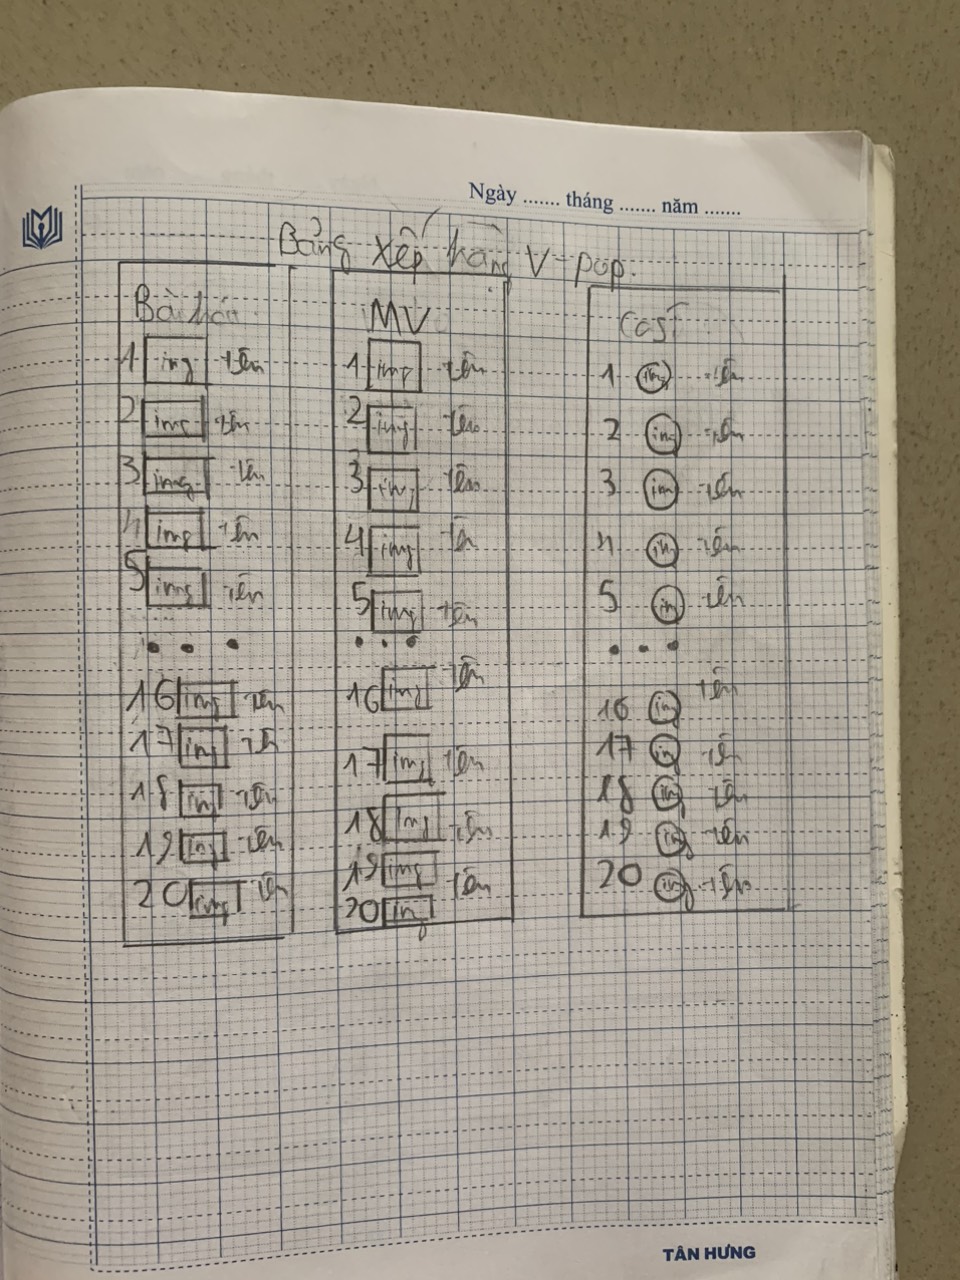 Ngày ....... tháng ....... năm .......
Bảng xếp hàng V-pop.
Bài hát
1 img tên
2 img tên
3 img tên
4 img tên
5 img tên
...
16 img tên
17 img tên
18 img tên
19 img tên
20 img tên
MV
1 img tên
2 img tên
3 img tên
4 img tên
5 img tên
...
16 img tên
17 img tên
18 img tên
19 img tên
20 img
1 img tên
2 img tên
3 img tên
4 img tên
5 img tên
...
16 img tên
17 img tên
18 img tên
19 img tên
20 img tên
TÂN HƯNG